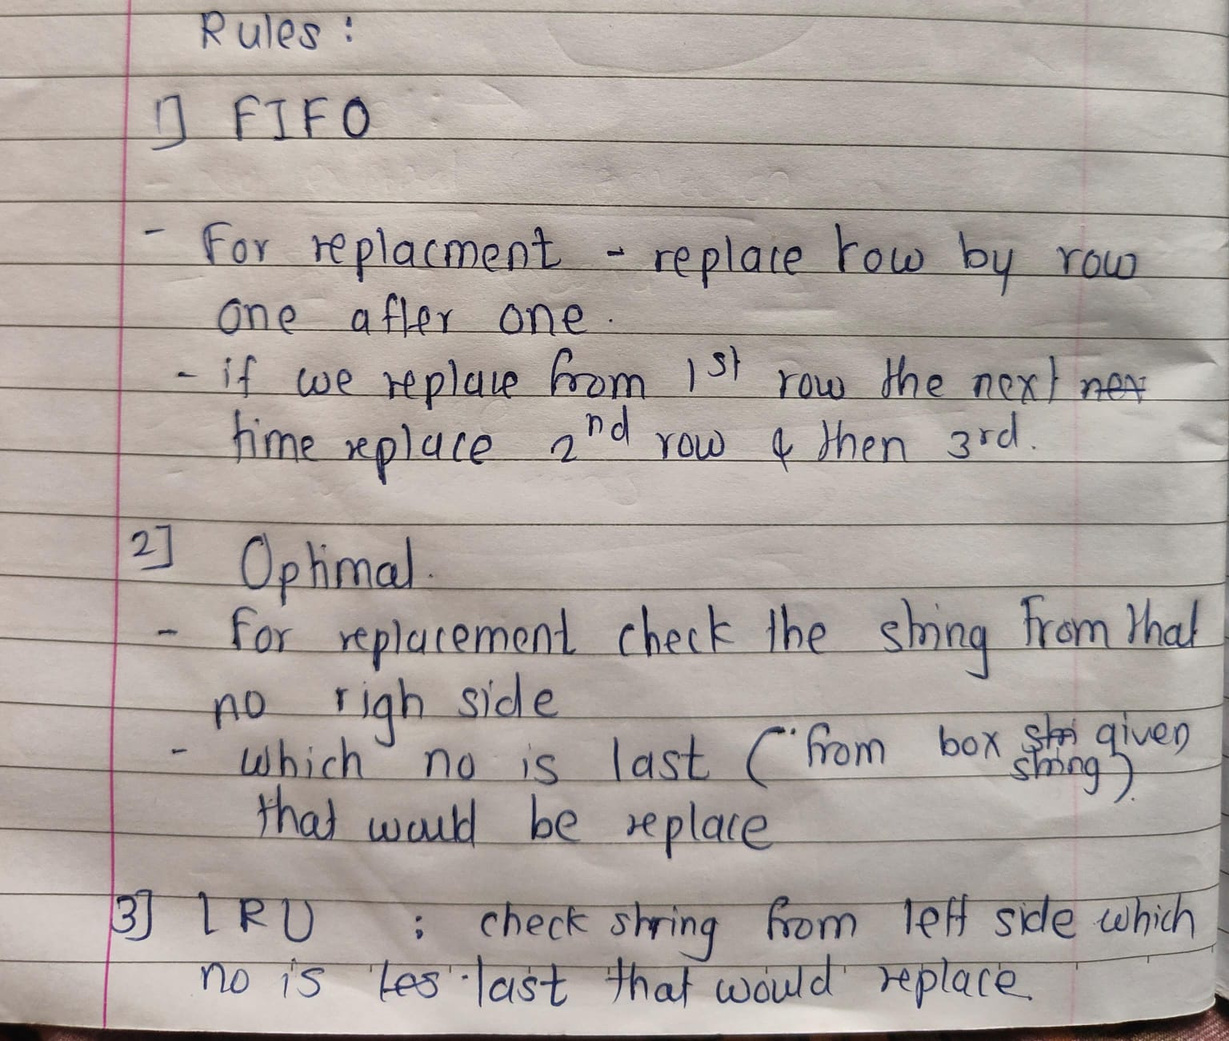 Rules :
1] FIFO
- For replacment - replace row by row
one after one.
- if we replace from 1st row the next nex
time replace 2nd row & then 3rd.
2] Optimal.
- for replacement check the string from that
no righ side
- which no is last ( from box stri given
string)
that would be replace
3] LRU : check string from left side which
no is les last that would replace.